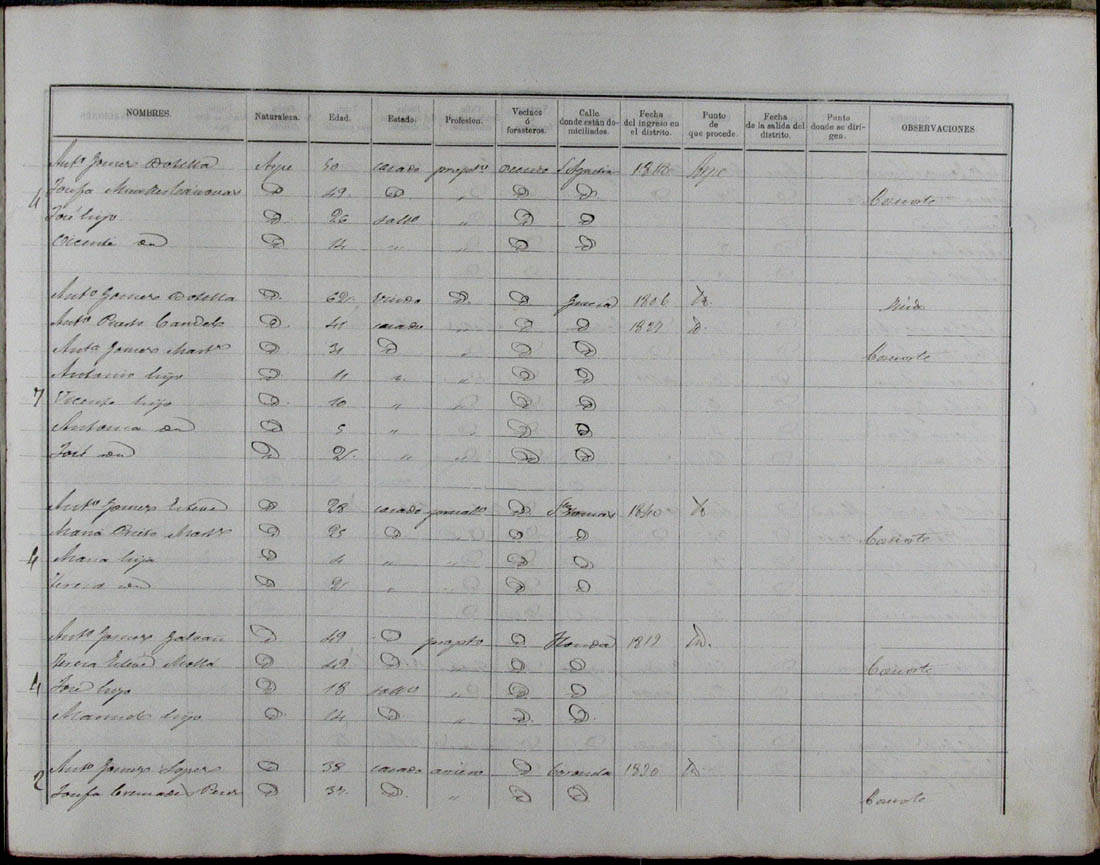 NOMBRES. Naturaleza. Edad. Estado. Profesion. Vecinos ó forasteros. Calle donde están domiciliados. Fecha del ingreso en el distrito. Punto de que procede. Fecha de la salida del distrito. Punto donde se dirigen. OBSERVACIONES
Antº Gomez Botella Aspe 50 casado propº vecino S. Agustin 1810 Aspe
4 Josefa D 49 D " D D Consorte
José hijo D 26 solto " D D
Vicente id D 14 " " D D
Antº Gomez Botella D. 62 viudo D D 1806 D.
Antº Puerto Candela D. 41 casado " D D 1827 D.
Antª Gomez Martz D 31 D " D D Consorte
Antonio hijo D. 11 " " D D
7 Vicente hijo D. 10 " " D D
Antonia id D 5 " " D D
José id D 2 " " D D
Antº Gomez Esteve D 28 casado jornalº D Sto Tomas 1840 D
Maria Martz D 25 D D D Consorte
4 Maria hija D 4 " " D D
Teresa id D 2 " " D D
Antº Gomez Galvan D 49 D propto D 1812 D.
Teresa Esteve Molla D 49 D. D D Consorte
4 José hijo D 18 solto " D. D
Manuel hijo D. 14 D. " D. D.
2 Antº Gomez Lopez D 38 casado arriero D 1830 D
Josefa Cremades Perez D 37. D. " D D Consorte